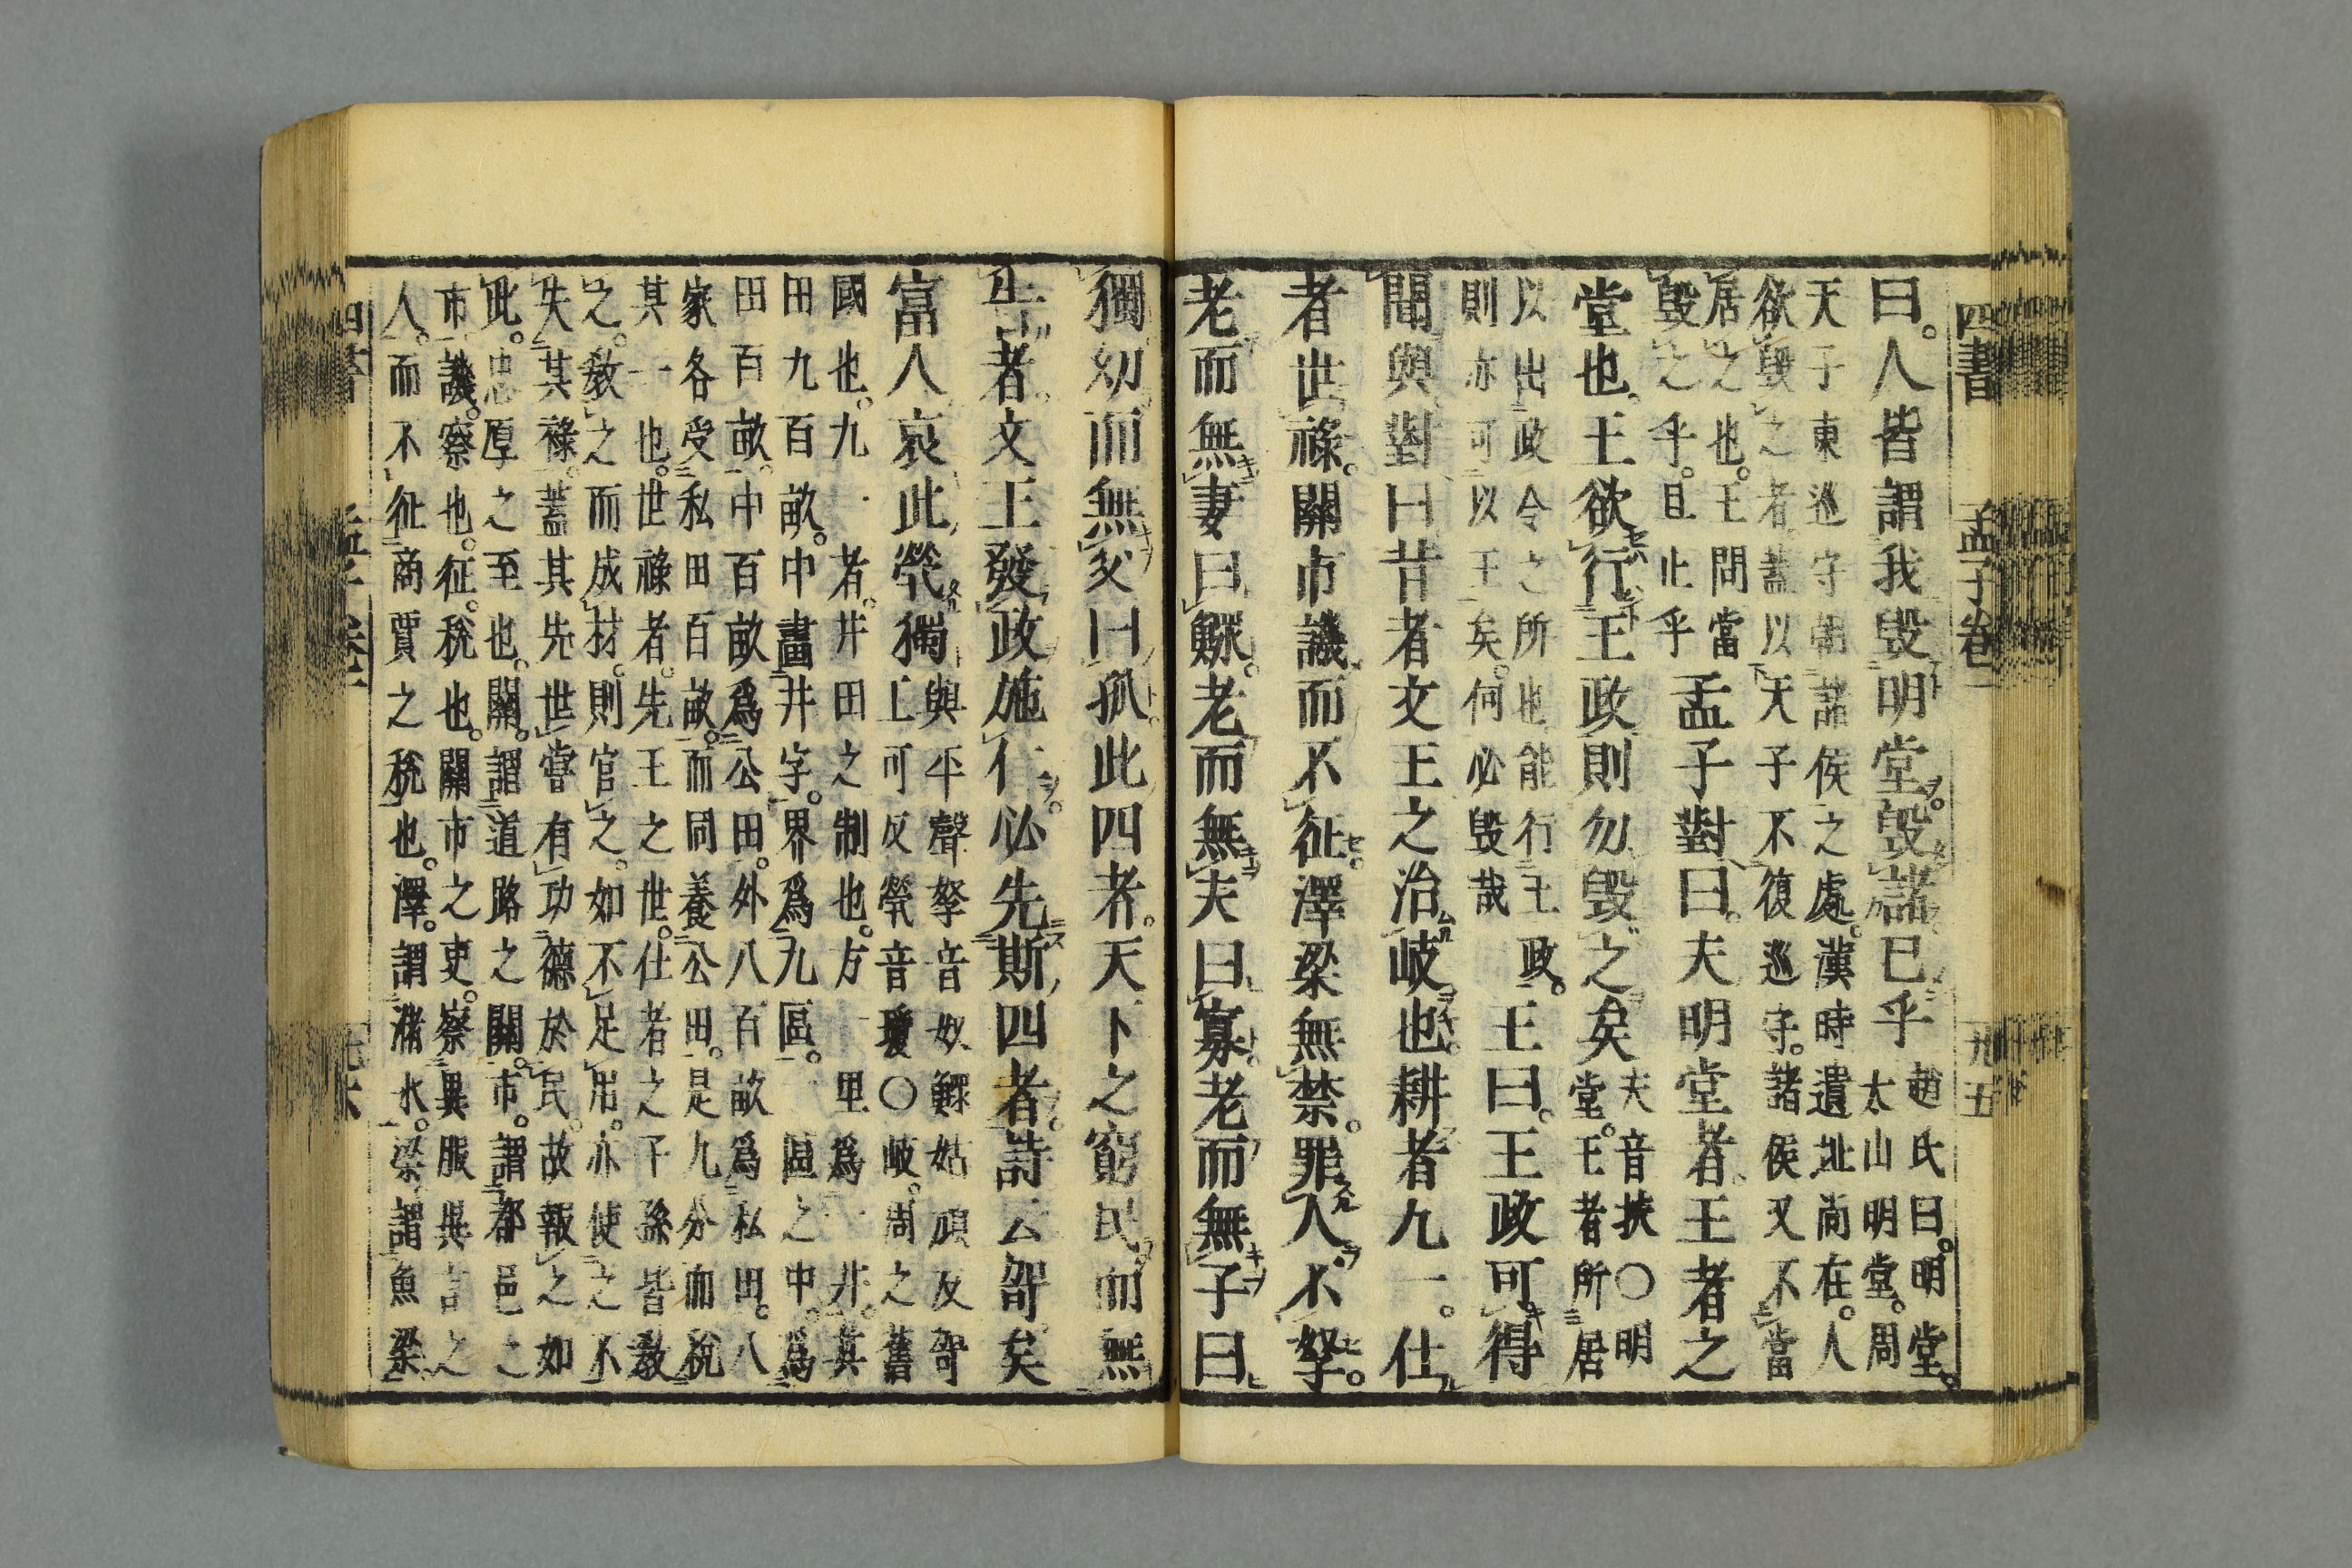 四書 孟子卷一 九五
曰。人皆謂我毀明堂。毀諸已乎
趙氏曰。明堂。
太山明堂。周
天子東巡守朝諸侯之處。漢時遺址尚在。人
欲毀之者。蓋以天子不復巡守。諸侯又不當
居之也。王問當
毀之乎。且止乎
孟子對曰。夫明堂者。王者之
堂也。王欲行王政則勿毀之矣
夫音扶〇明
堂。王者所居
以出政令之所也。能行王政。
則亦可以王矣。何必毀哉
王曰。王政可得
聞與對曰昔者文王之治岐也。耕者九一。仕
者世祿。關市譏而不征。澤梁無禁。罪人不孥。
老而無妻曰鰥。老而無夫曰寡。老而無子曰
獨。幼而無父曰孤。此四者。天下之窮民而無
告者。文王發政施仁。必先斯四者。詩云哿矣
富人哀此煢獨
與平聲孥音奴鰥姑頑反哿
工可反煢音瓊〇岐。周之舊
國也。九一者。井田之制也。方一里爲一井。其
田九百畝。中畫井字。界爲九區。一區之中。爲
田百畝。中百畝爲公田。外八百畝爲私田。八
家各受私田百畝。而同養公田。是九分而稅
其一也。世祿者。先王之世。仕者之子孫皆教
之。教之而成材。則官之。如不足用。亦使之不
失其祿。蓋其先世嘗有功德於民。故報之如
此。忠厚之至也。關。謂道路之關。市。謂都邑之
市。譏。察也。征。稅也。關市之吏。察異服異言之
人。而不征商賈之稅也。澤。謂瀦水。梁。謂魚梁。